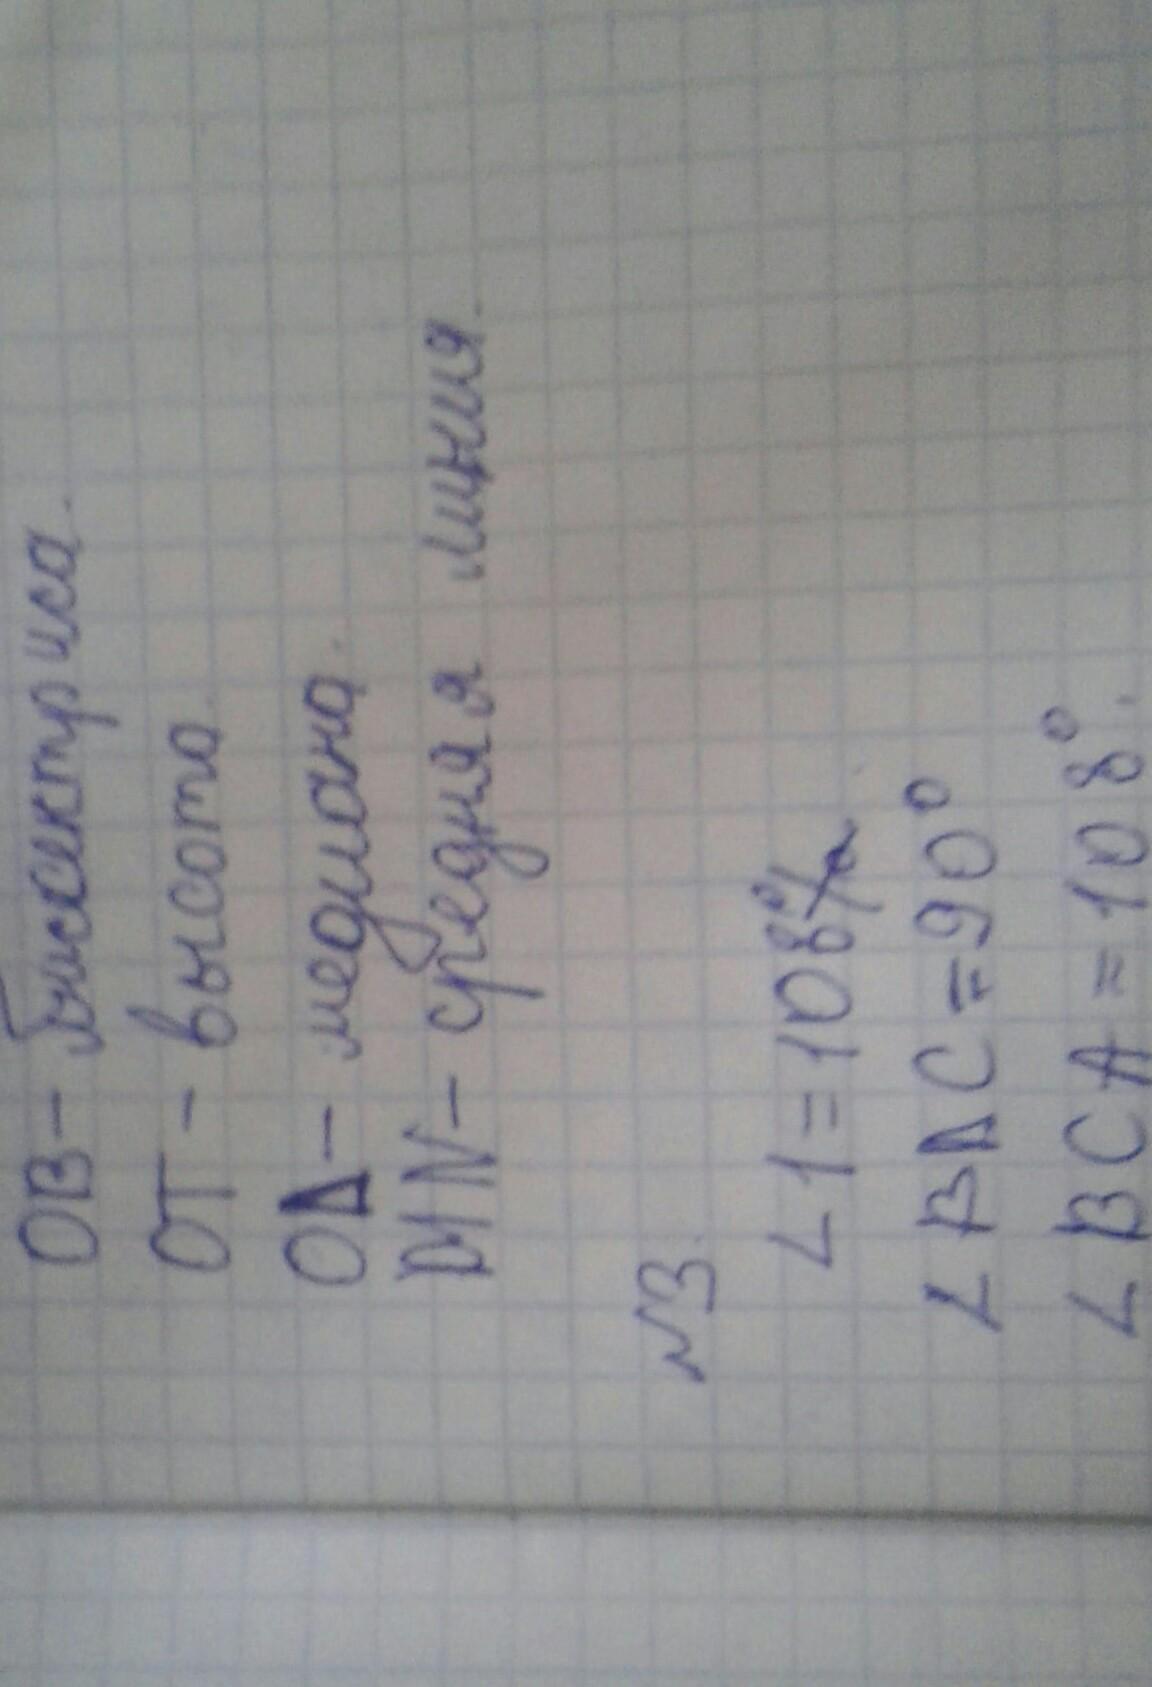 ОВ - биссектриса.
ОТ - высота.
ОА - медиана.
MN - средняя линия.
№3.
∠1=108°
∠BAC=90°
∠BCA=108°.